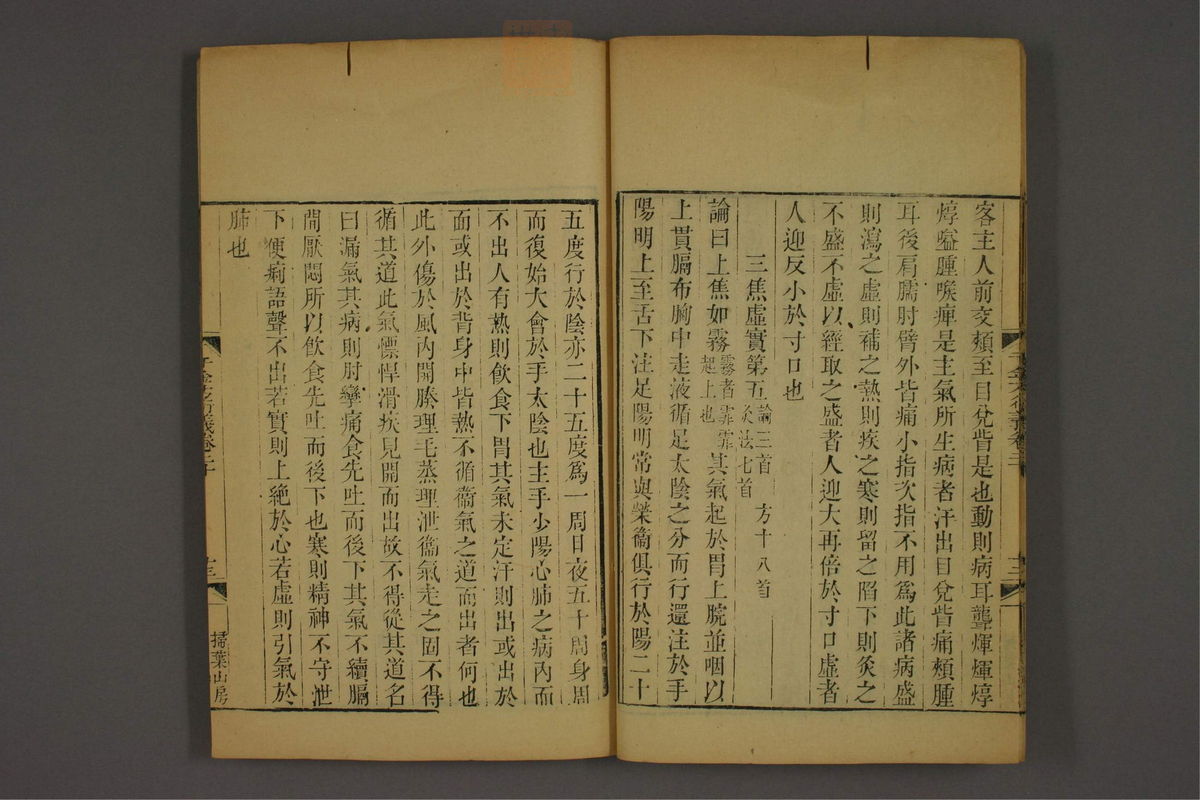 客主人前交頰至目兌眥是也動則病耳聾煇煇焞
焞嗌腫喉痺是主氣所生病者汗出目兌眥痛頰腫
耳後肩臑肘臂外皆痛小指次指不用爲此諸病盛
則瀉之虛則補之熱則疾之寒則留之陷下則灸之
不盛不虛以經取之盛者人迎大再倍於寸口虛者
人迎反小於寸口也
三焦虛實第五論三首 方十八首
灸法七首
論曰上焦如霧霧者霏霏
起上也其氣起於胃上脘並咽以
上貫膈布胸中走液循足太陰之分而行還注於手
陽明上至舌下注足陽明常與榮衞俱行於陽二十
五度行於陰亦二十五度爲一周日夜五十周身周
而復始大會於手太陰也主手少陽心肺之病內而
不出人有熱則飮食下胃其氣未定汗則出或出於
面或出於背身中皆熱不循衞氣之道而出者何也
此外傷於風內開腠理毛蒸理泄衞氣走之固不得
循其道此氣慓悍滑疾見開而出故不得從其道名
曰漏氣其病則肘攣痛食先吐而後下其氣不續膈
間厭悶所以飮食先吐而後下也寒則精神不守泄
下便痢語聲不出若實則上絶於心若虛則引氣於
肺也
千金方衍義卷二十
十三
掃葉山房